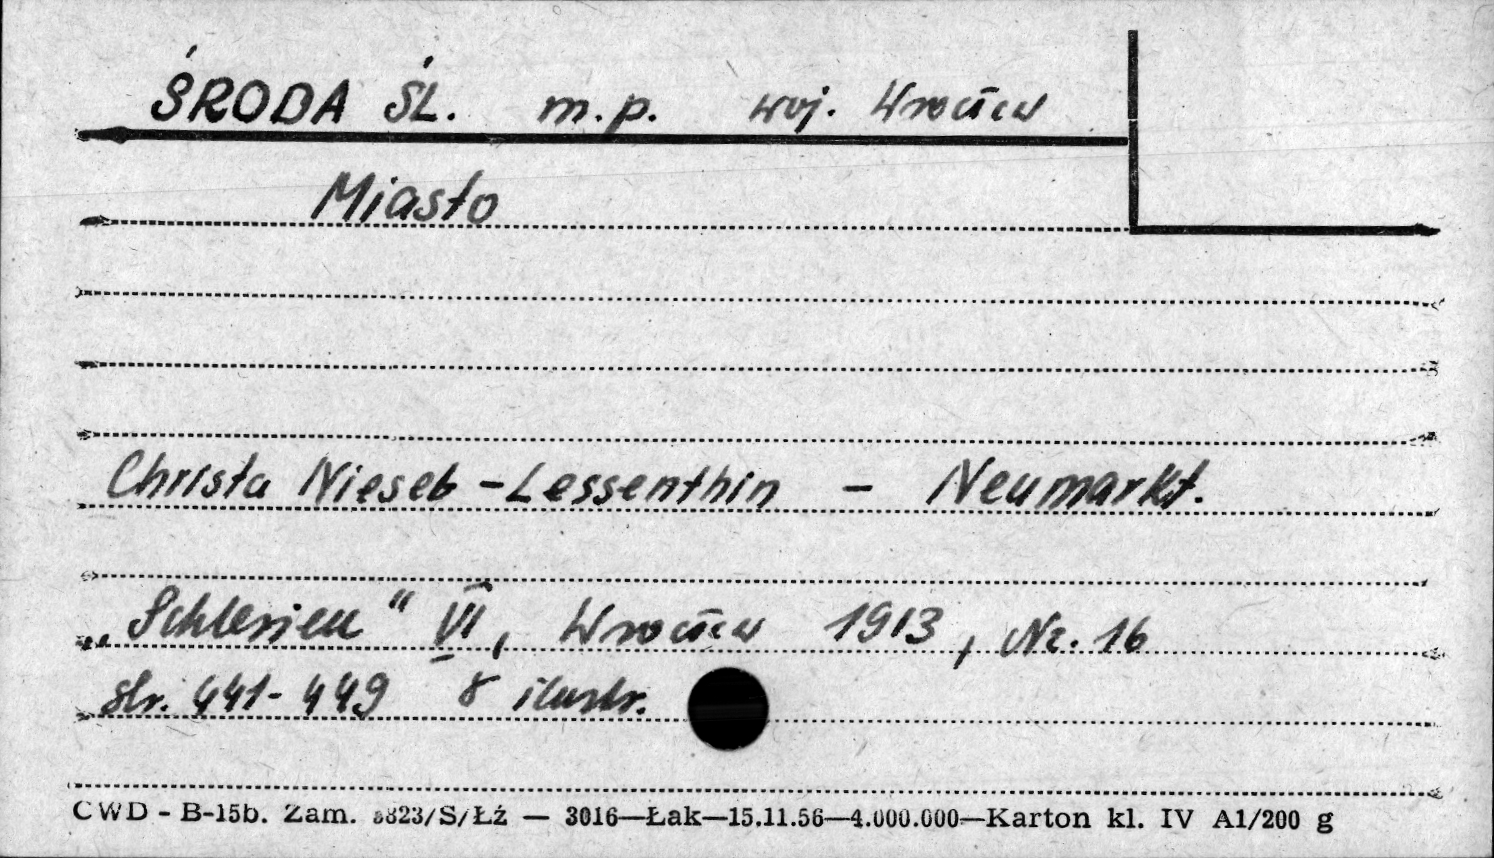 ŚRODA ŚL. m.p. woj. Wrocław
Miasto
Christa Nieseb - Lessenthin - Neumarkt.
„Schlesien" VI, Wrocław 1913, Nr. 16
str. 441-449 8 ilustr.
CWD - B-15b. Zam. 8823/S/Łź — 3016—Łak—15.11.56—4.000.000—Karton kl. IV A1/200 g